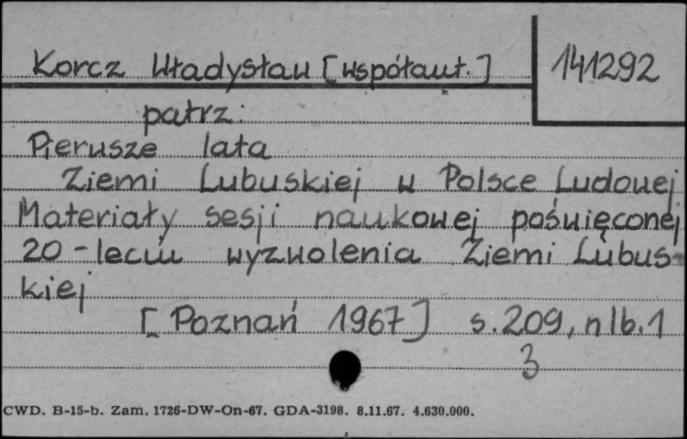 Korcz Władysław [współaut.]
141292
patrz:
Pierwsze lata
Ziemi Lubuskiej w Polsce Ludowej
Materiały sesji naukowej poświęconej
20-leciu wyzwolenia Ziemi Lubus-
kiej
[Poznań 1967] s.209, nlb.1
3
CWD. B-15-b. Zam. 1726-DW-On-67. GDA-3198. 8.11.67. 4.630.000.